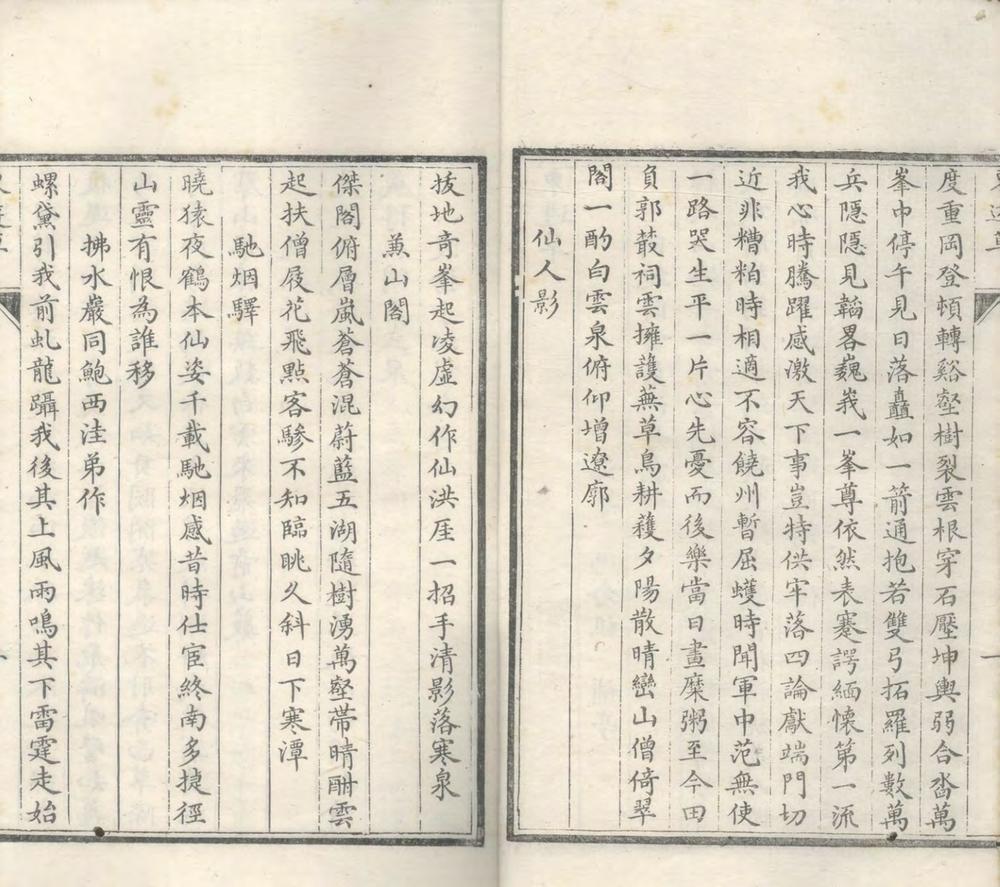 度重岡登頓轉谿壑樹裂雲根穿石壓坤輿弱合沓萬
峯巾停午見日落矗如一箭通抱若雙弓拓羅列數萬
兵隱隱見韜畧巍峩一峯尊依然表蹇諤緬懷第一流
我心時騰躍感激天下事豈特供牢落四論獻端門切
近非糟粕時相適不容饒州暫屈蠖時聞軍中范無使
一路哭生平一片心先憂而後樂當日畫糜粥至今田
負郭叢祠雲擁護蕪草鳥耕穫夕陽散晴巒山僧倚翠
閣一酌白雲泉俯仰增遼廓
仙人影
拔地奇峯起凌虛幻作仙洪厓一招手清影落寒泉
兼山閣
傑閣俯層嵐蒼蒼混蔚藍五湖隨樹湧萬壑帶晴酣雲
起扶僧屐花飛點客驂不知臨眺久斜日下寒潭
馳烟驛
曉猿夜鶴本仙姿千載馳烟感昔時仕宦終南多捷徑
山靈有恨為誰移
拂水巖同鮑西洼弟作
螺黛引我前虬龍躡我後其上風雨鳴其下雷霆走始